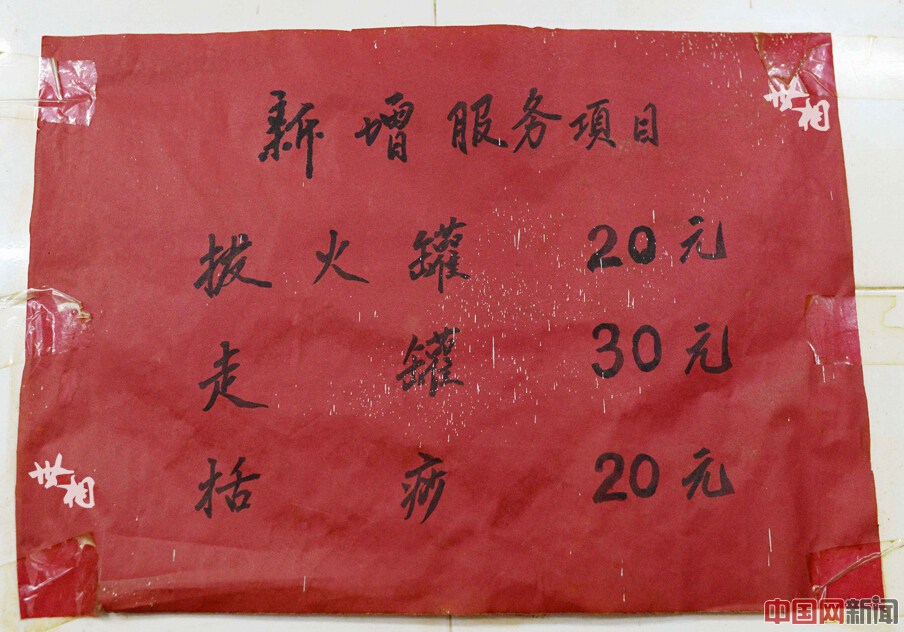 新增服务項目
拔火罐 20元
走罐 30元
括痧 20元
世相
世相
中国网新闻